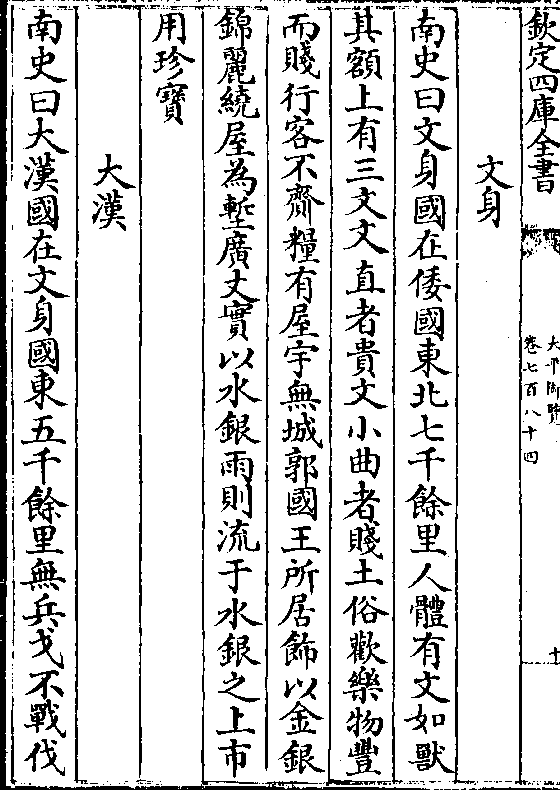 欽定四庫全書
太平御覽
卷七百八十四
十
文身
南史曰文身國在倭國東北七千餘里人體有文如獸
其額上有三文文直者貴文小曲者賤土俗歡樂物豐
而賤行客不齎糧有屋宇無城郭國王所居飾以金銀
錦麗繞屋為塹廣丈實以水銀雨則流于水銀之上市
用珍寶
大漢
南史曰大漢國在文身國東五千餘里無兵戈不戰伐